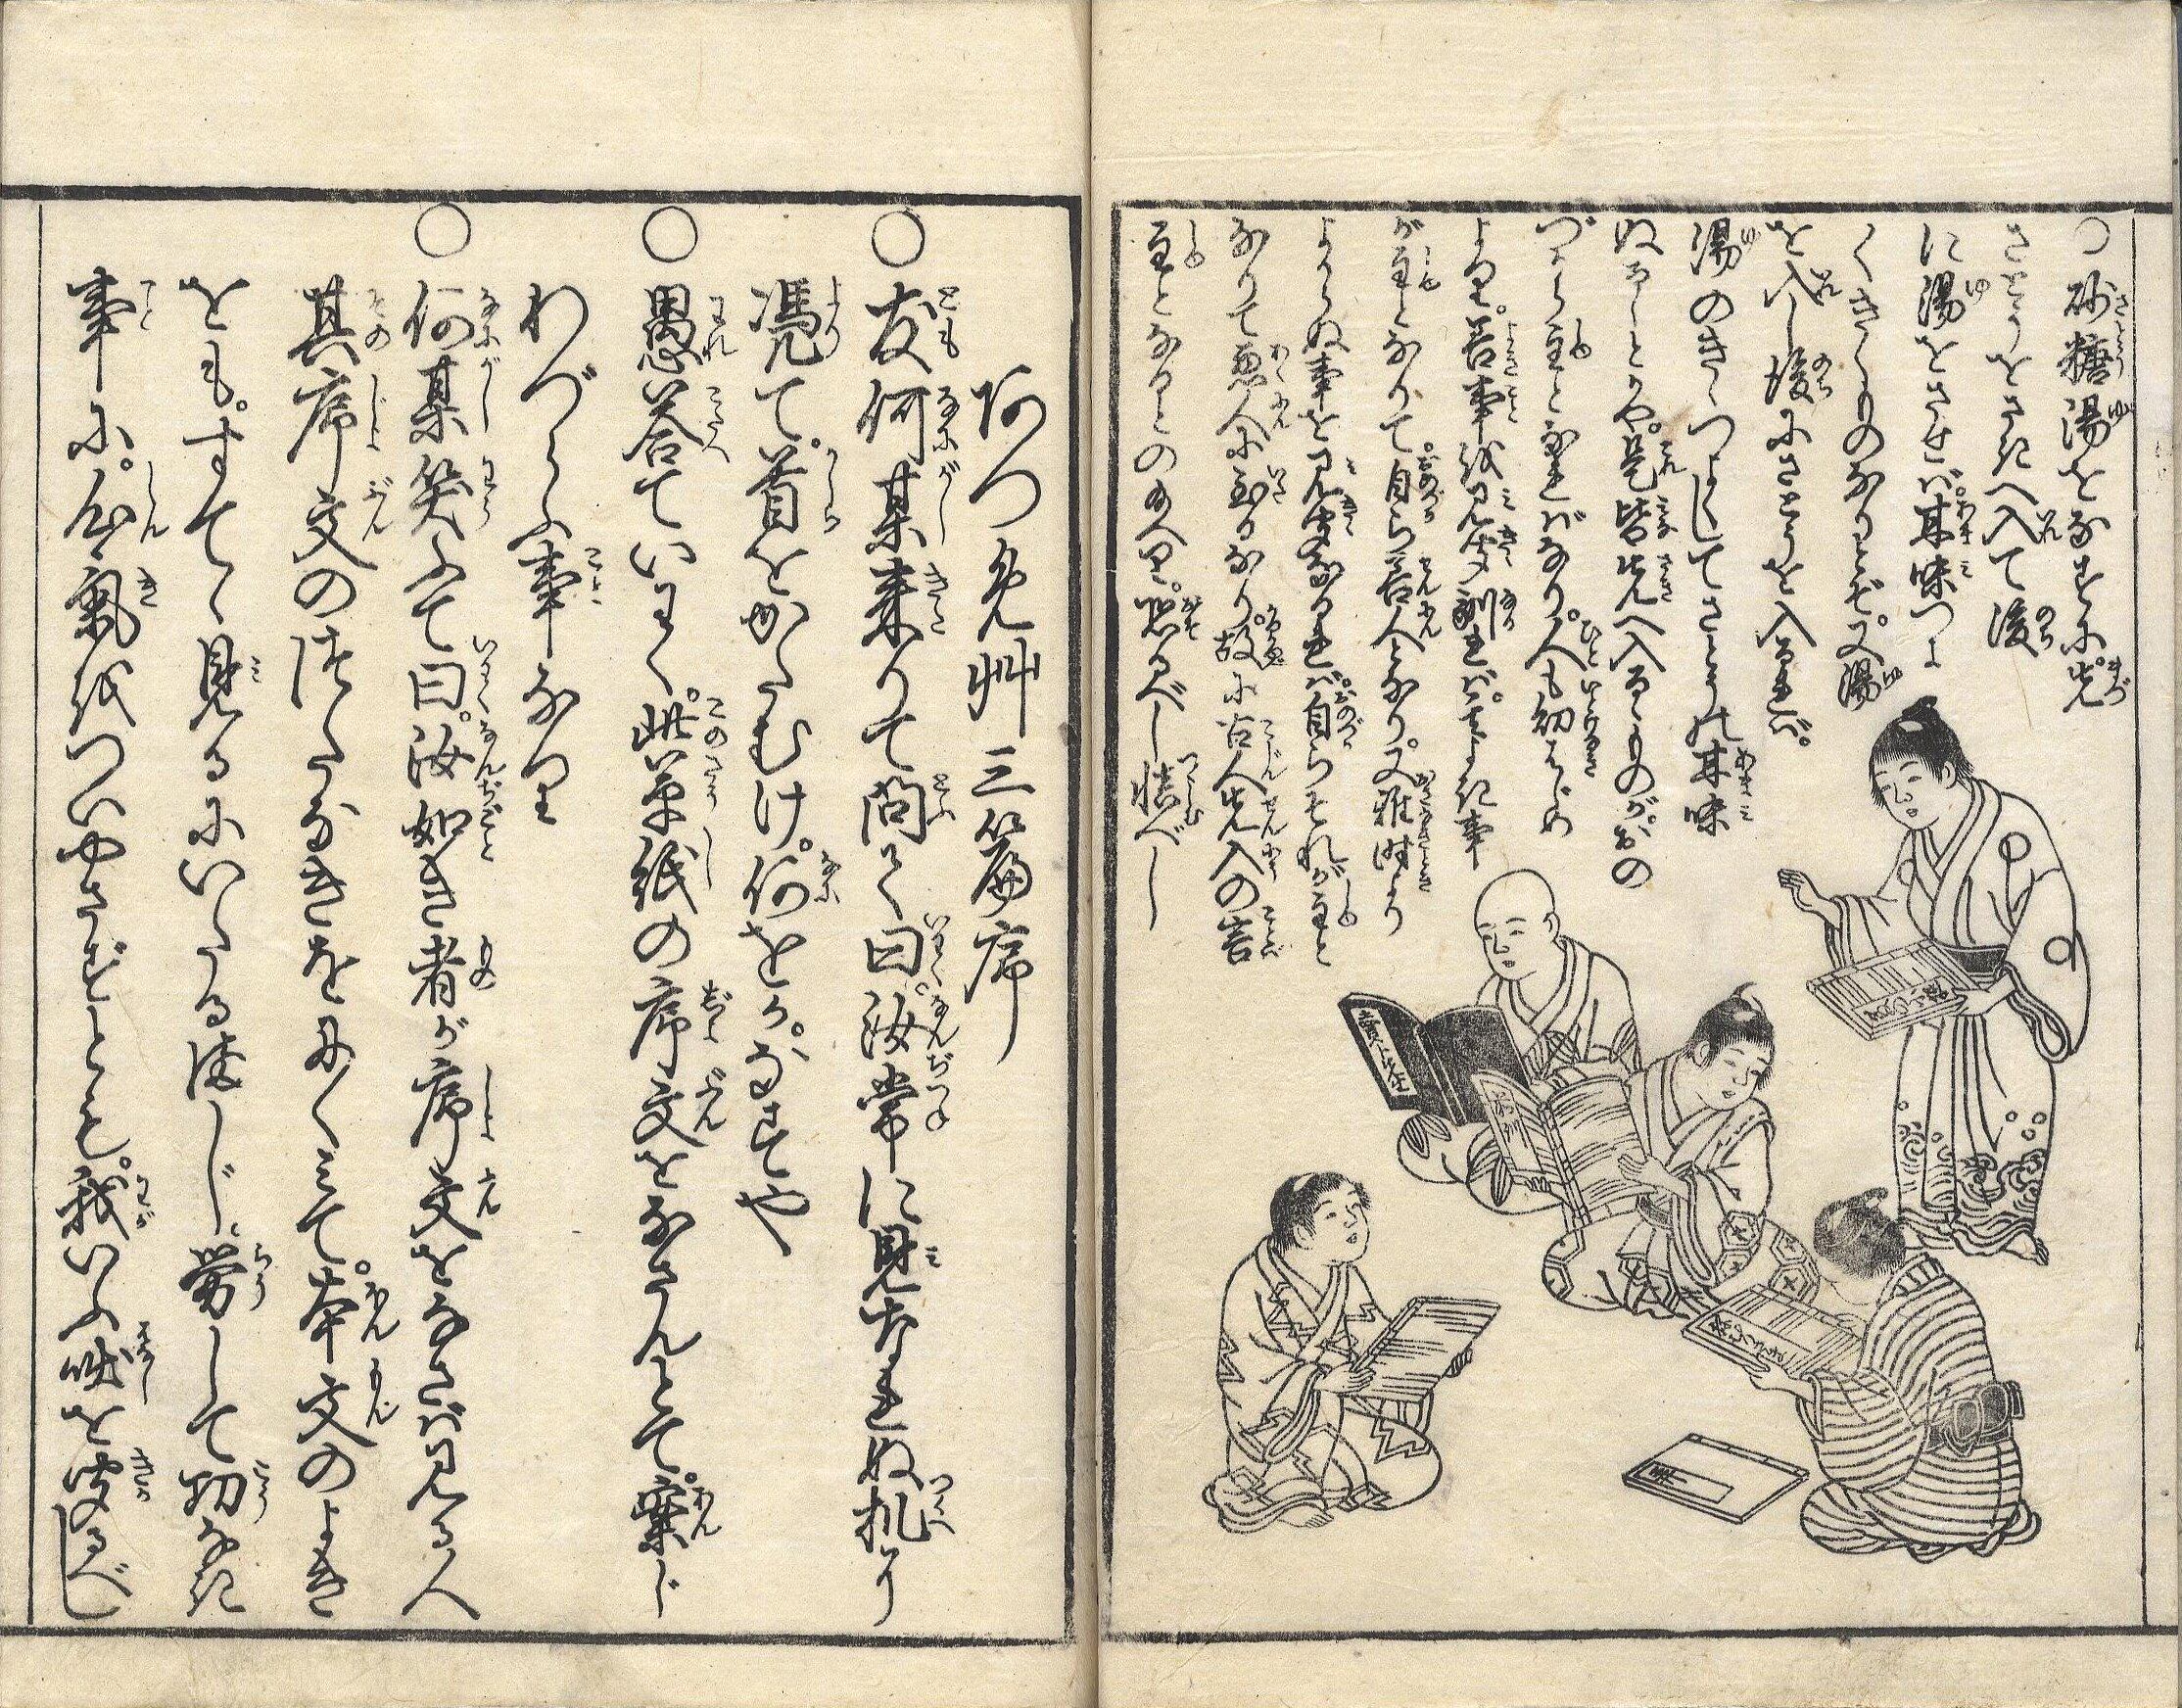 ○砂糖湯をなすに先
さとうをさきへ入て後
に湯をさせば。甘味つよ
くきくものなりとぞ。又湯
を入し後にさとうを入るれば。
湯のきゝつよくしてさとうの甘味
ぬるしとかや。是皆先へ入るゝものがおの
づから主となればなり。人も幼はじめ
より。善事を見聞馴れば。そのよき事
が主となりて。自ら善人となり。又稚時より
よからぬ事を見聞なるれば。自らそれが主と
なりて悪人に至るなり。故に古人先入の言
主となるとの給へり。恐るべし慎べし
阿つめ艸三篇序
○友何某来りて問て曰。汝常に見なれぬ机に
憑て。首をかたむけ。何をか。なすや
○愚答ていわく。此草紙の序文をなさんとて。案じ
わづらふ事なり
○何某笑ふて曰。汝如き者が序文をなさば見る人
其序文のつたなきをにくみて。本文のよき
をも。すてゝ見るにいたるまじ。労して功なき
事に。心氣をついやさずとも。我いふ咄を聞るべし